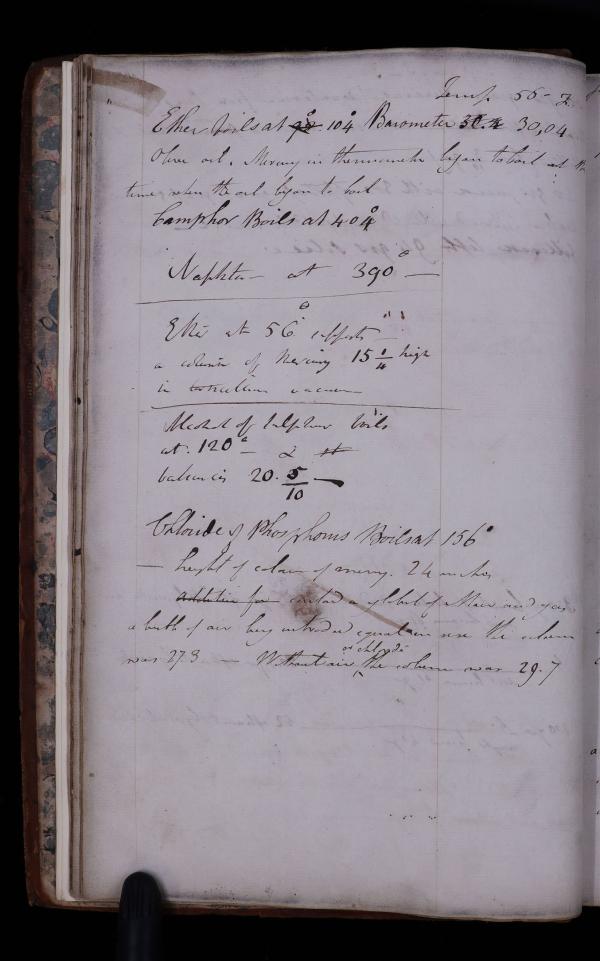 Temp. 56°
Ether boils at 98 104° Barometer 30.4 30,04
Olive oil. Mercury in thermometer began to boil at the
time when the oil began to boil
Camphor Boils at 404°
Naphta — at 390° —
Ether at 56° supports
a column of Mercury 15 1/4 high
in torricellian vacuum
of Sulphur boils
at. 120° — & it
balances 20. 5/10 —
Chloride of Phosphorus Boils at 156°
— height of column of mercy. 24 inches
addition for a globul of and
a bulb of air being introduced the column
was 27.3 — Without air or chloride the column was 29.7